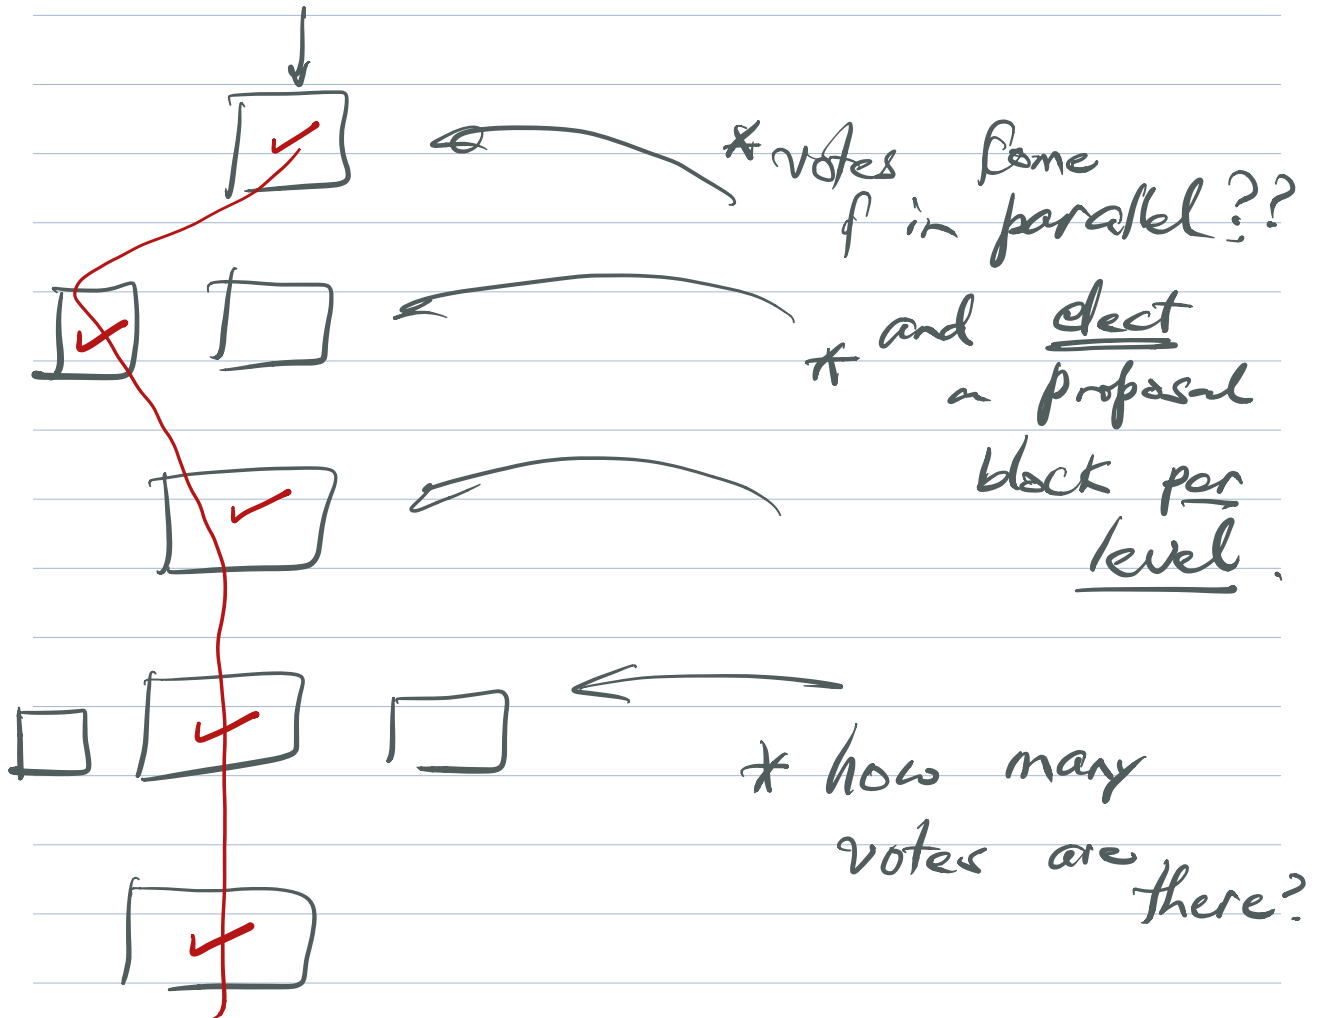 * votes come
in parallel??
* and elect
a proposal
block per
level.
* how many
votes are
there?